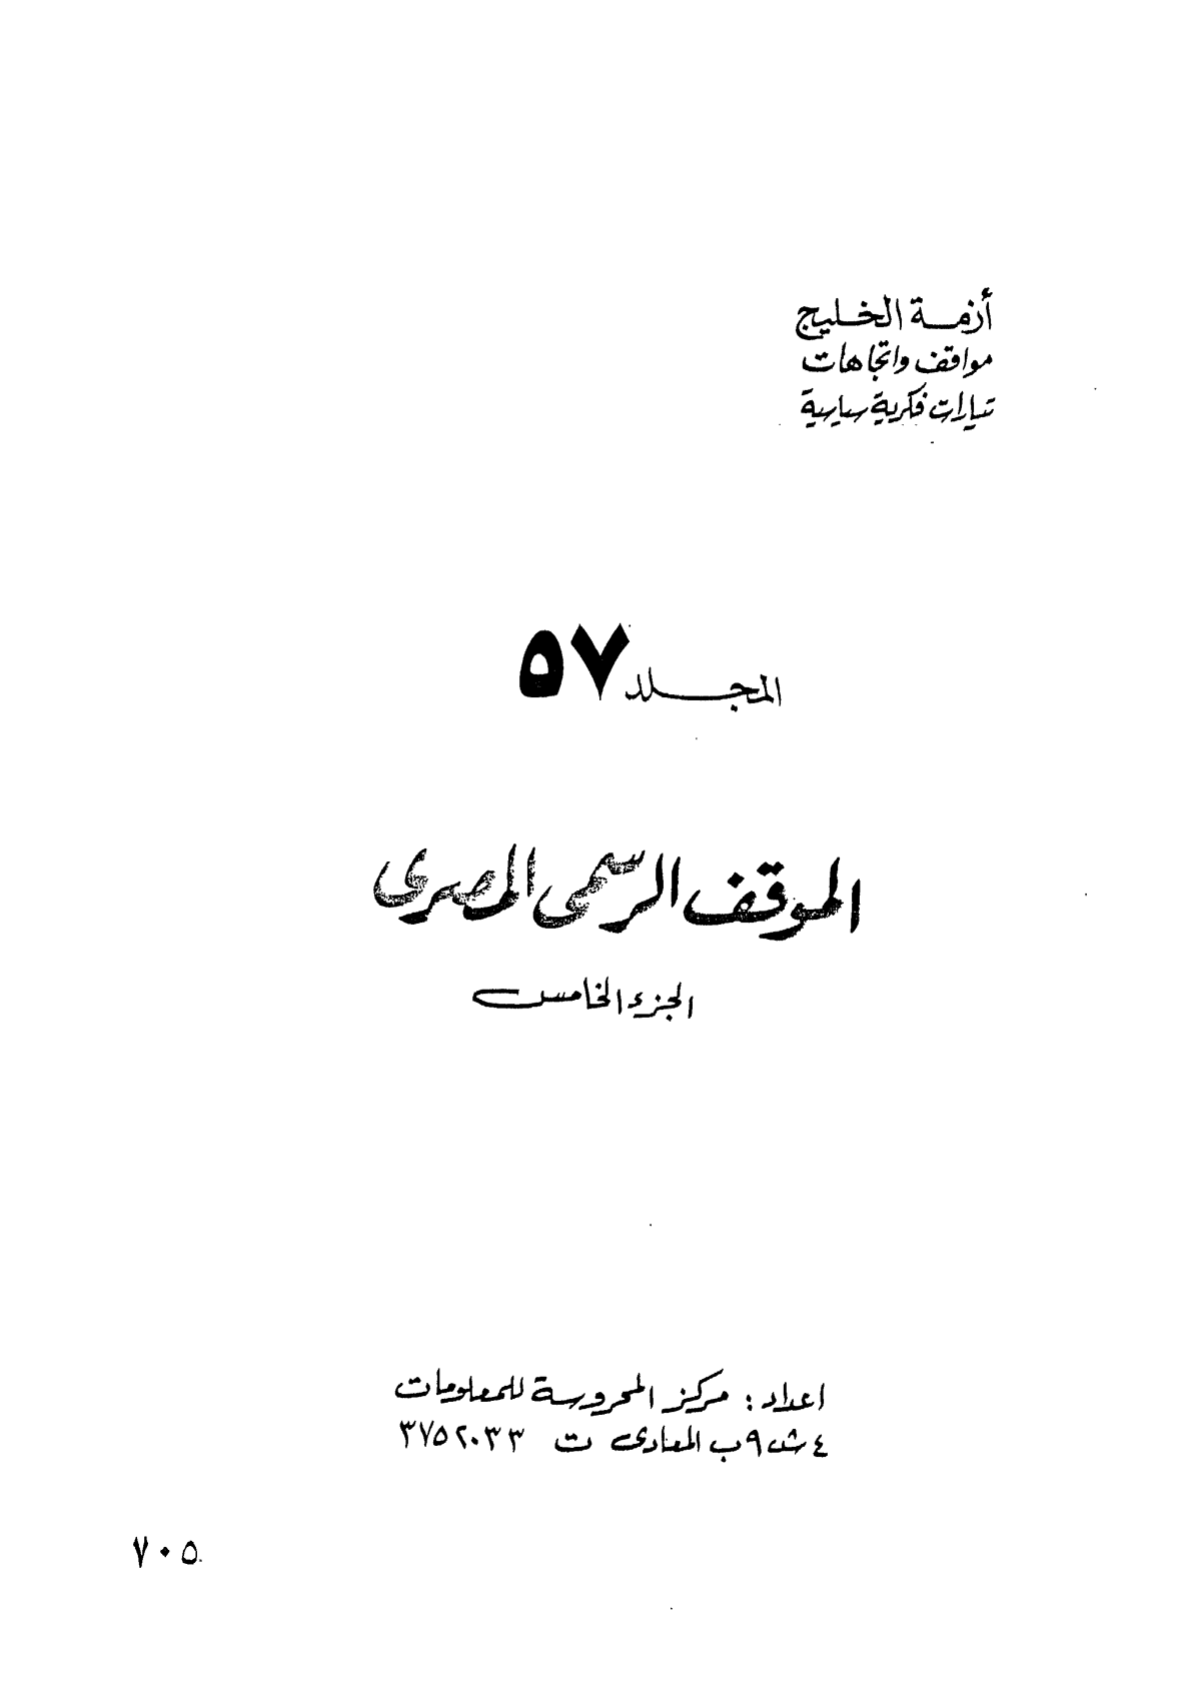 أزمة الخليج
مواقف واتجاهات
تيارات فكرية سياسية
المجلد ٥٧
الموقف الرسمى المصرى
الجزء الخامس
اعداد : مركز المحروسة للمعلومات
٤ ش ٩ب المعادى ت ٣٧٥٢٠٣٣
٧٠٥